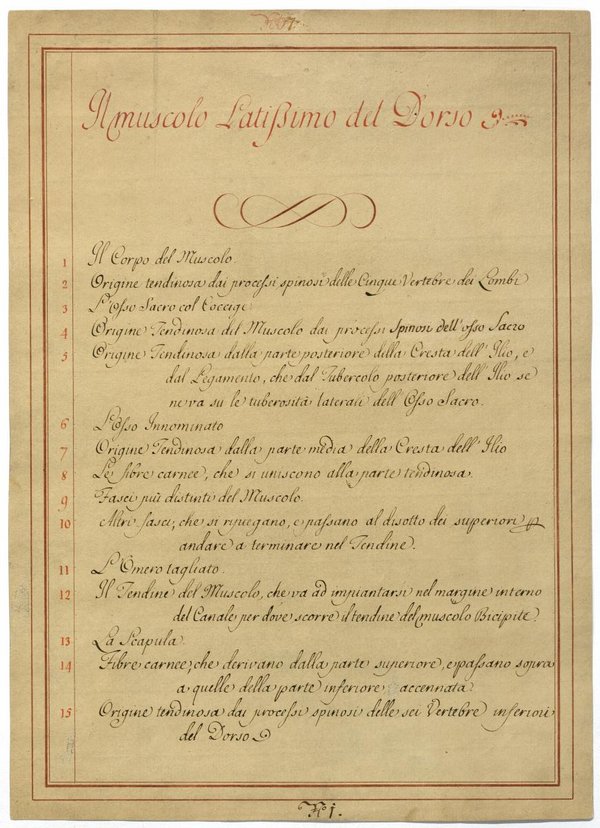 Il muscolo Latissimo del Dorso
1 Il Corpo del Muscolo.
2 Origine tendinosa dai processi spinosi delle Cinque Vertebre dei Lombi
3 L'Osso Sacro col Coccige
4 Origine Tendinosa del Muscolo dai processi Spinosi dell'osso Sacro
5 Origine Tendinosa dalla parte posteriore della Cresta dell'Ilio, e
dal Legamento, che dal Tubercolo posteriore dell'Ilio se
ne va su le tuberosità laterali dell'Osso Sacro.
6 L'Osso Innominato
7 Origine Tendinosa dalla parte media della Cresta dell'Ilio
8 Le fibre carnee, che si uniscono alla parte tendinosa.
9 Fasci più distinti del Muscolo.
10 Altri fasci, che si ripiegano, e passano al disotto dei superiori
andare a terminare nel Tendine.
11 L'Omero tagliato.
12 Il Tendine del Muscolo, che va ad impiantarsi nel margine interno
del Canale per dove scorre il tendine del muscolo Bicipite.
13 La Scapula.
14 Fibre carnee, che derivano dalla parte superiore, e passano sopra
a quelle della parte inferiore accennata
15 Origine tendinosa dai processi spinosi delle sei Vertebre inferiori
del Dorso
No 1.